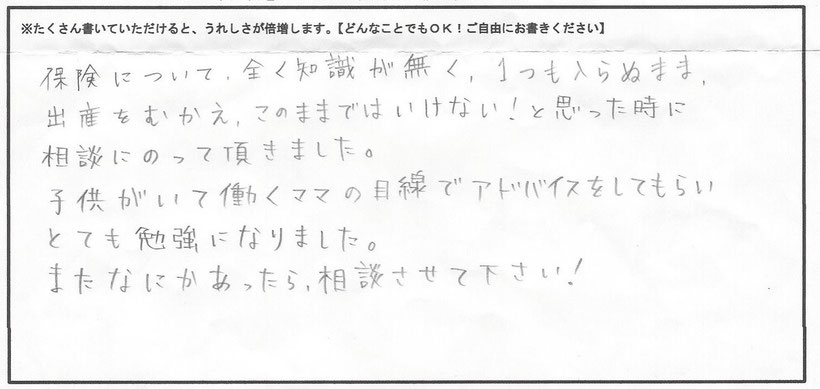 ※たくさん書いていただけると、うれしさが倍増します。【どんなことでもOK！ご自由にお書きください】
保険について、全く知識が無く、1つも入らぬまま、
出産をむかえ、このままではいけない！と思った時に
相談にのって頂きました。
子供がいて働くママの目線でアドバイスをしてもらい
とても勉強になりました。
またなにかあったら、相談させて下さい！